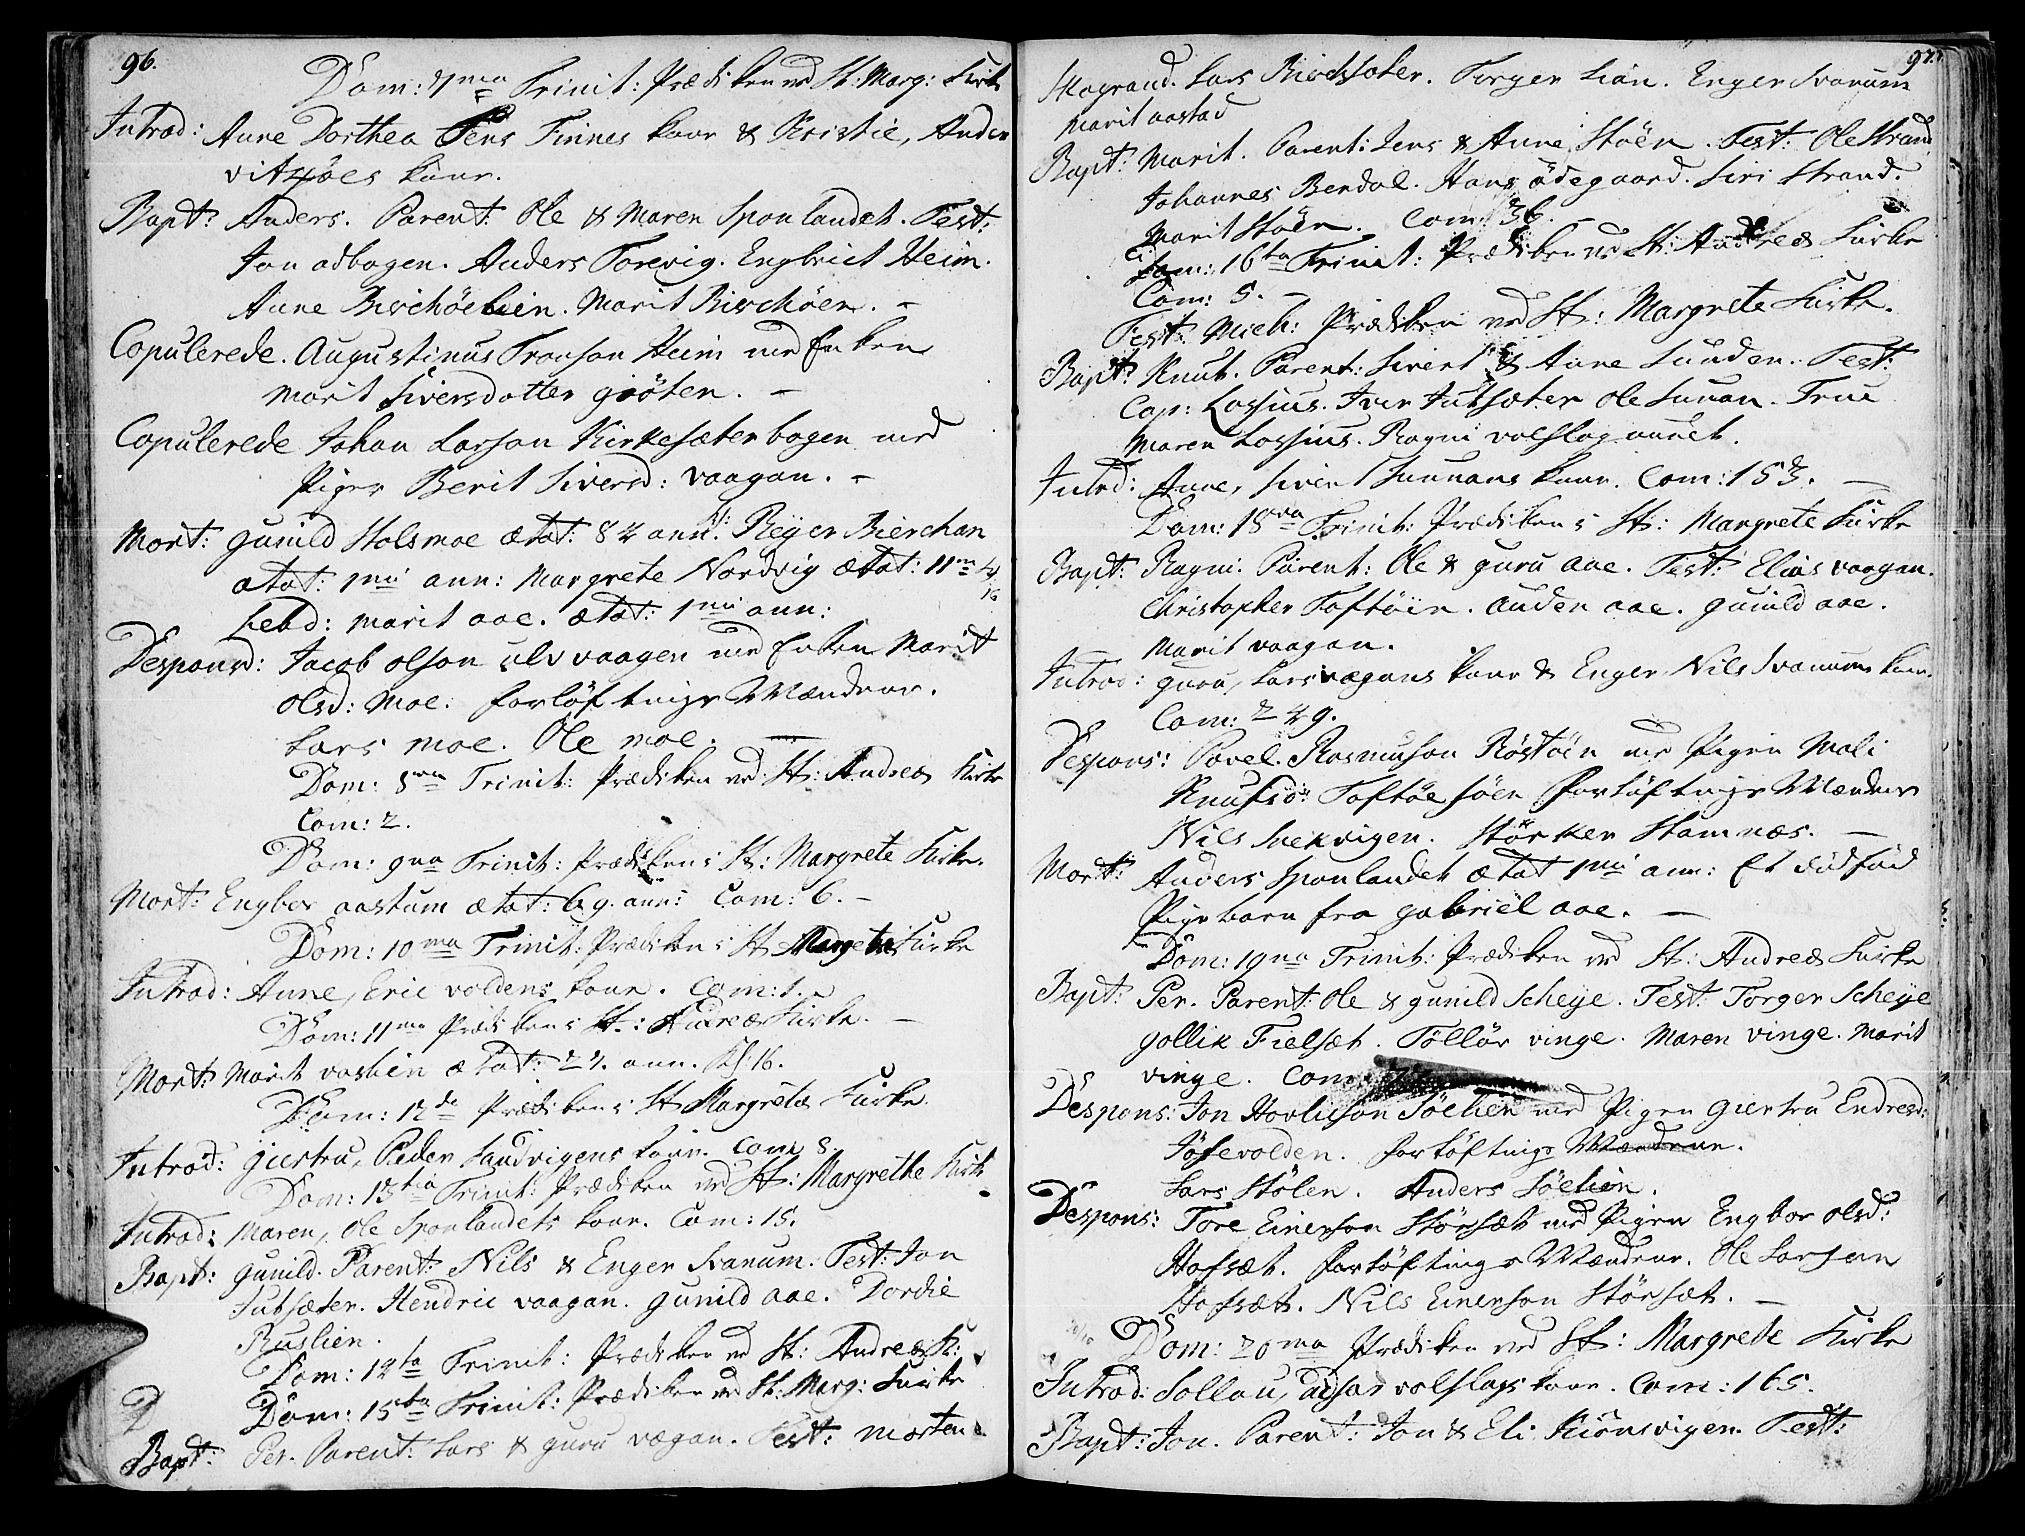 96.
Dom: 7ma Trinit: Prædiken ved St: Marg: Kirke
Introd: Anne Dorthea Jens Finnes kone & Kristie, Anders
vitsøes kone.
Bapt: Anders. Parent: Ole & Maren Sponlandet. Test:
Jon odbogen. Anders Torevig. Engbrict Heim.
Anne Birchöelien. Marit Birchöen. –
Copulerede. Augustinus Tronson Heim med Enken
Marit Siversdotter gröten. –
Copulerede Johan Larson Kirkesæterbogen med
Pigen Berit Siversd: vaagan. –
Mort: gunild Holsmoe ætat: 84 ann: Reÿer Bierchan
ætat: 1mi ann: Margrete Nordvig ætat: 11m
hebd: marit aae. ætat: 1mi ann:
Desponsd: Jacob olson ulvvaagen med Enken Marit
olsd: Moe. forlöftnings Mændene.
Lars moe. Ole moe. –
Dom: 8va Trinit: Prædiken ved St: Andreæ Kirke
Com: 2.
Dom: 9na Trinit: Prædiken i St: Margrete Kirke.
Mort: Engbor aastum ætat: 69. ann: Com: 6. –
Dom: 10ma Trinit: Prædiken i St Margrete Kirke
Introd: Anne, Eric voldens kone. Com: 1.
Dom: 11ma Prædiken i St: Andreæ Kirke. –
Mort: Marit vaslien ætat: 27. ann. 16.
Dom: 12de Prædiken i St Margretæ Kirke.
Introd: giertru, Peder Sandvigens kone. Com 8.
Dom: 13tia Trinit: Prædiken ved St: Margrethe Kirke
Introd: Maren, Ole Sponlandets kone. Com: 15.
Bapt: gunild. Parent: Nils & Enger Svanum. Test: Jon
Jutsæter. Hendric vaagan. gunild aae. Dordie
Ruslien.
Dom: 14ta Trinit: Prædiken ved St: Andreæ K:
Dom: 15ta Trinit: Prædiken ved St: Marg: Kirke
Bapt: Per. Parent: Lars & guru vægan. Test: Morten
97.
Mograud. Lars Birchsæter. Torger Lian. Enger Svanum
Marit aastad
Bapt: Marit. Parent: Jens & Anne Stöen. Test: Ole Strand
Johannes Bendal. Hans ödegaard. Siri Strand.
Marit Stöen. Com: 36. –
Dom: 16ta Trinit: Prædiken ved St: Andreæ Kirke
Com: 5. –
Fest: Mich: Prædiken ved St: Margrete Kirke.
Bapt: Knut. Parent: Sivert & Anne Sunden. Test:
Cap: Lossius. Iver Jutsæter Ole Sunan. Frue
Maren Lossius. Ragni volslagaunet.
Introd: Anne, Sivert Sunnans kone. Com: 153. –
Dom: 18va Trinit: Prædiken i St: Margrete Kirke
Bapt: Ragni. Parent: Ole & guru aae. Test: Elias vaagan.
Christopher Toftöien. auden aae. gunild aae.
Marit vaagan.
Introd: guru, Lars vægans kone & Enger Nils Svanums kone.
Com: 249.
Despons: Povel Rasmuson Röstöen med Pigen Mali
Knutsd: Toftöesöen forlöftnings Mændene
Nils Snekvigen. Störker Stamnæs. –
Mort: Anders Sponlandet ætat 1mi ann: Et dödföd
Pigebarn fra gabriel aae. –
Dom: 19na Trinit: Prædiken ved St: Andreæ Kirke
Bapt: Per. Parent: Ole & gunild Scheÿe. Test: Torger Scheÿe
gollik Fielsæt. Töllöv vinge. Maren vinge. Marit
vinge. Com:
Despons: Jon Hovlieson Söelien med Pigen giertru Endresd:
Jösevolden. forlöftnings Mændene.
Lars Stölen. Anders Söelien.
Despons: Tore Einerson Störsæt med Pigen Engbor olsd:
Hofsæt. forlöftnings Mændene. Ole Larsen
Hofsæt. Nils Einerson Störsæt. –
Dom: 20ma Prædiken ved St: Margrete Kirke
Introd: Sollau, volslags kone. Com: 165.
Bapt: Jon. Parent: Jon & Eli Kiönsvigen. Test: